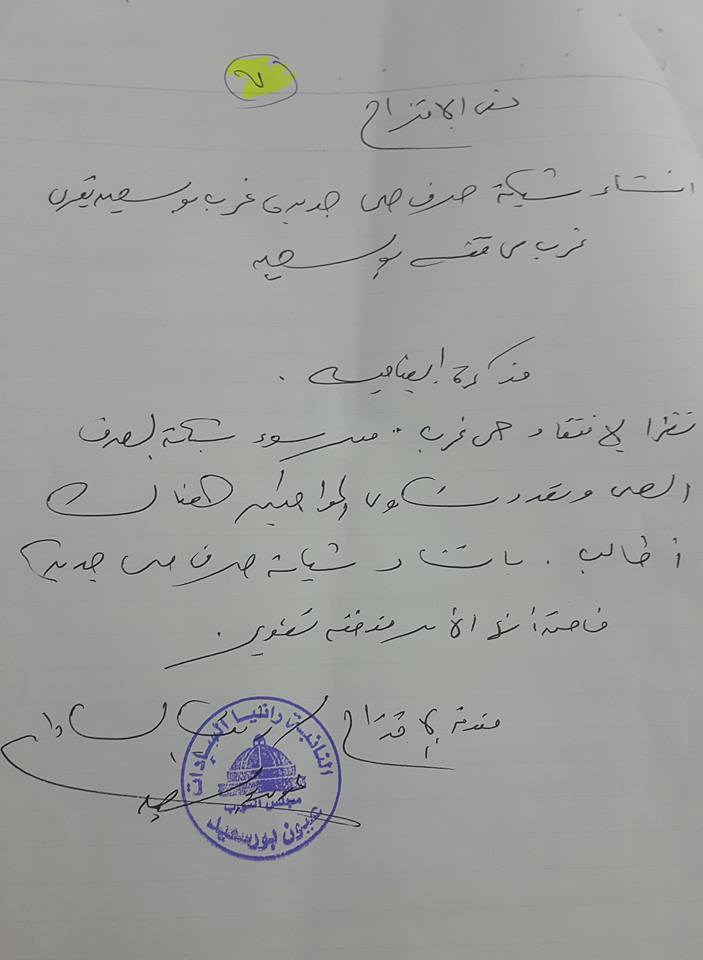 ٧
نص الاقتراح
انشاء شبكة صرف صحى جديدة غرب بورسعيد بقرى
غرب محافظة بورسعيد
مذكرة ايضاحيه .
نظرا لافتقاد حى غرب .. سوء شبكة الصرف
الصحى وتعدد شكاوى المواطنين هناك
أطالب . بانشاء شبكة صرف صحى جديدة
خاصة أن الأخيرة
مقدمة الاقتراح رانيا السادات
النائبة رانيا السادات
مجلس النواب
عيون بورسعيد